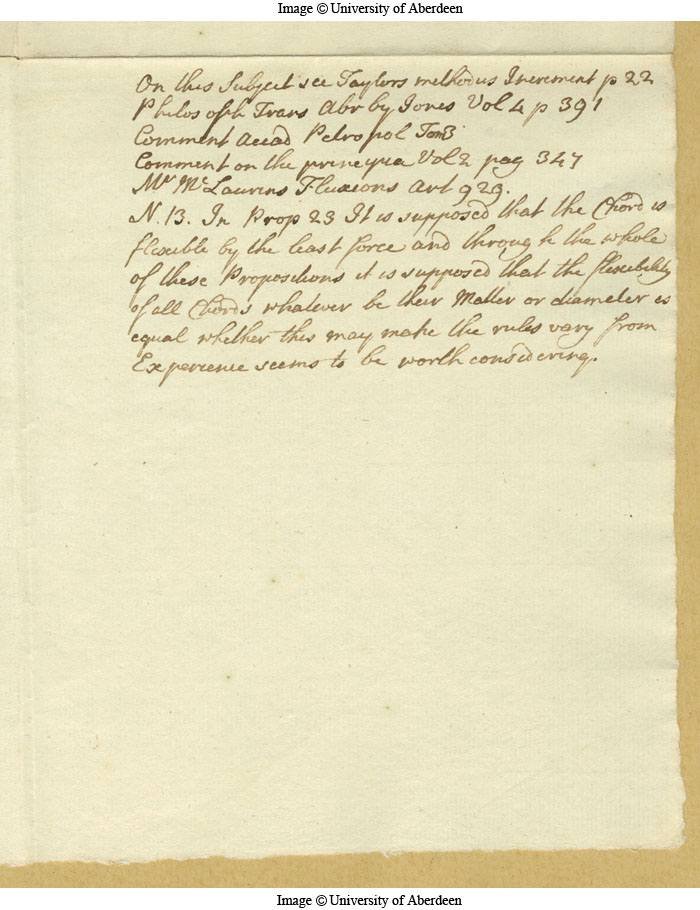 Image © University of Aberdeen
On this Subject see Taylors methodus Increment p 22
Philosoph Trans Abr by Jones Vol 4 p 391
Comment Acad Petropol Tom3
Comment on the principia Vol 2 pag 347
Mr McLaurins Fluxions Art 929.
N. B. In Prop 23 It is supposed that the Chord is
flexible by the least force and through the whole
of these Propositions it is supposed that the flexibility
of all Chords whatever be their Matter or diameter is
equal whether this may make the rules vary from
Experience seems to be worth considering.
Image © University of Aberdeen